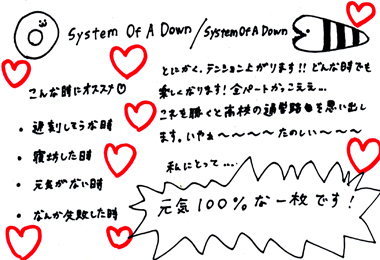 System Of A Down/System Of A Down
こんな時にオススメ
・遅刻しそうな時
・寝坊した時
・元気がない時
・なんか失敗した時
とにかく、テンション上がります!!どんな時でも
楽しくなります!全パートかっこええ…
これを聴くと高校の通学路を思い出し
ます。いやぁ〜〜〜〜たのしい〜〜〜
私にとって…
元気100%な一枚です!